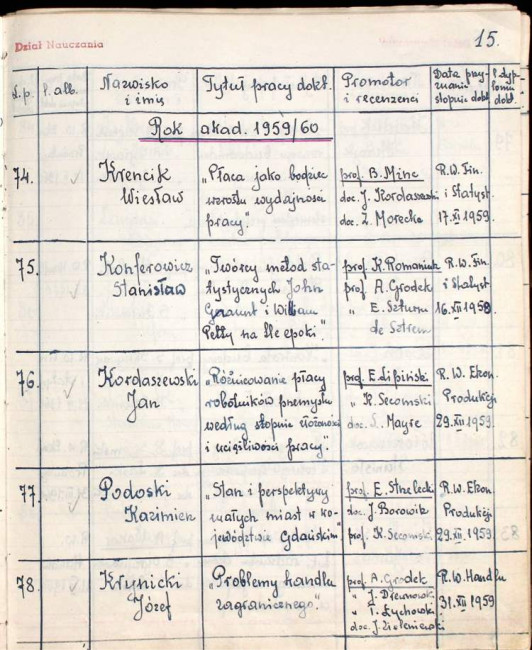 Dział Nauczania
15.
L.p. l. alb. Nazwisko i imię Tytuł pracy dokt. Promotor i recenzenci Data przyznania stopnia dokt.
Rok akad. 1959/60
74. Krencik Wiesław
„Płaca jako bodziec
wzrostu wydajności
pracy".
prof. B. Minc
doc. J. Kordaszewski
doc. Z. Morecka
R.W. Fin.
i Statyst.
17.XI 1959.
75. Konferowicz Stanisław
„Twórcy metod sta-
tystycznych John
Graunt i William
Petty na tle epoki".
prof. K. Romaniuk
prof. A. Grodek
" E. Szturm
de Sztrem
R.W. Fin.
i Statyst.
16.XII 1959.
76. Kordaszewski Jan
„Różnicowanie płacy
robotników przemysłu
według stopnia złożoności
i uciążliwości pracy".
prof. E. Lipiński
" K. Secomski
doc. S. Mayre
R.W. Ekon.
Produkcji
29.XII 1959.
77. Podoski Kazimierz
„Stan i perspektywy
małych miast w wo-
jewództwie Gdańskim"
prof. E. Strzelecki
doc. J. Borowik
prof. K. Secomski
R.W. Ekon.
Produkcji
29.XII 1959
78. Krynicki Józef
„Problemy handlu
zagranicznego".
prof. A. Grodek
" J. Drewnowski
" T. Łychowski
doc. J. Zieleniewski
R.W. Handlu
31.XII 1959